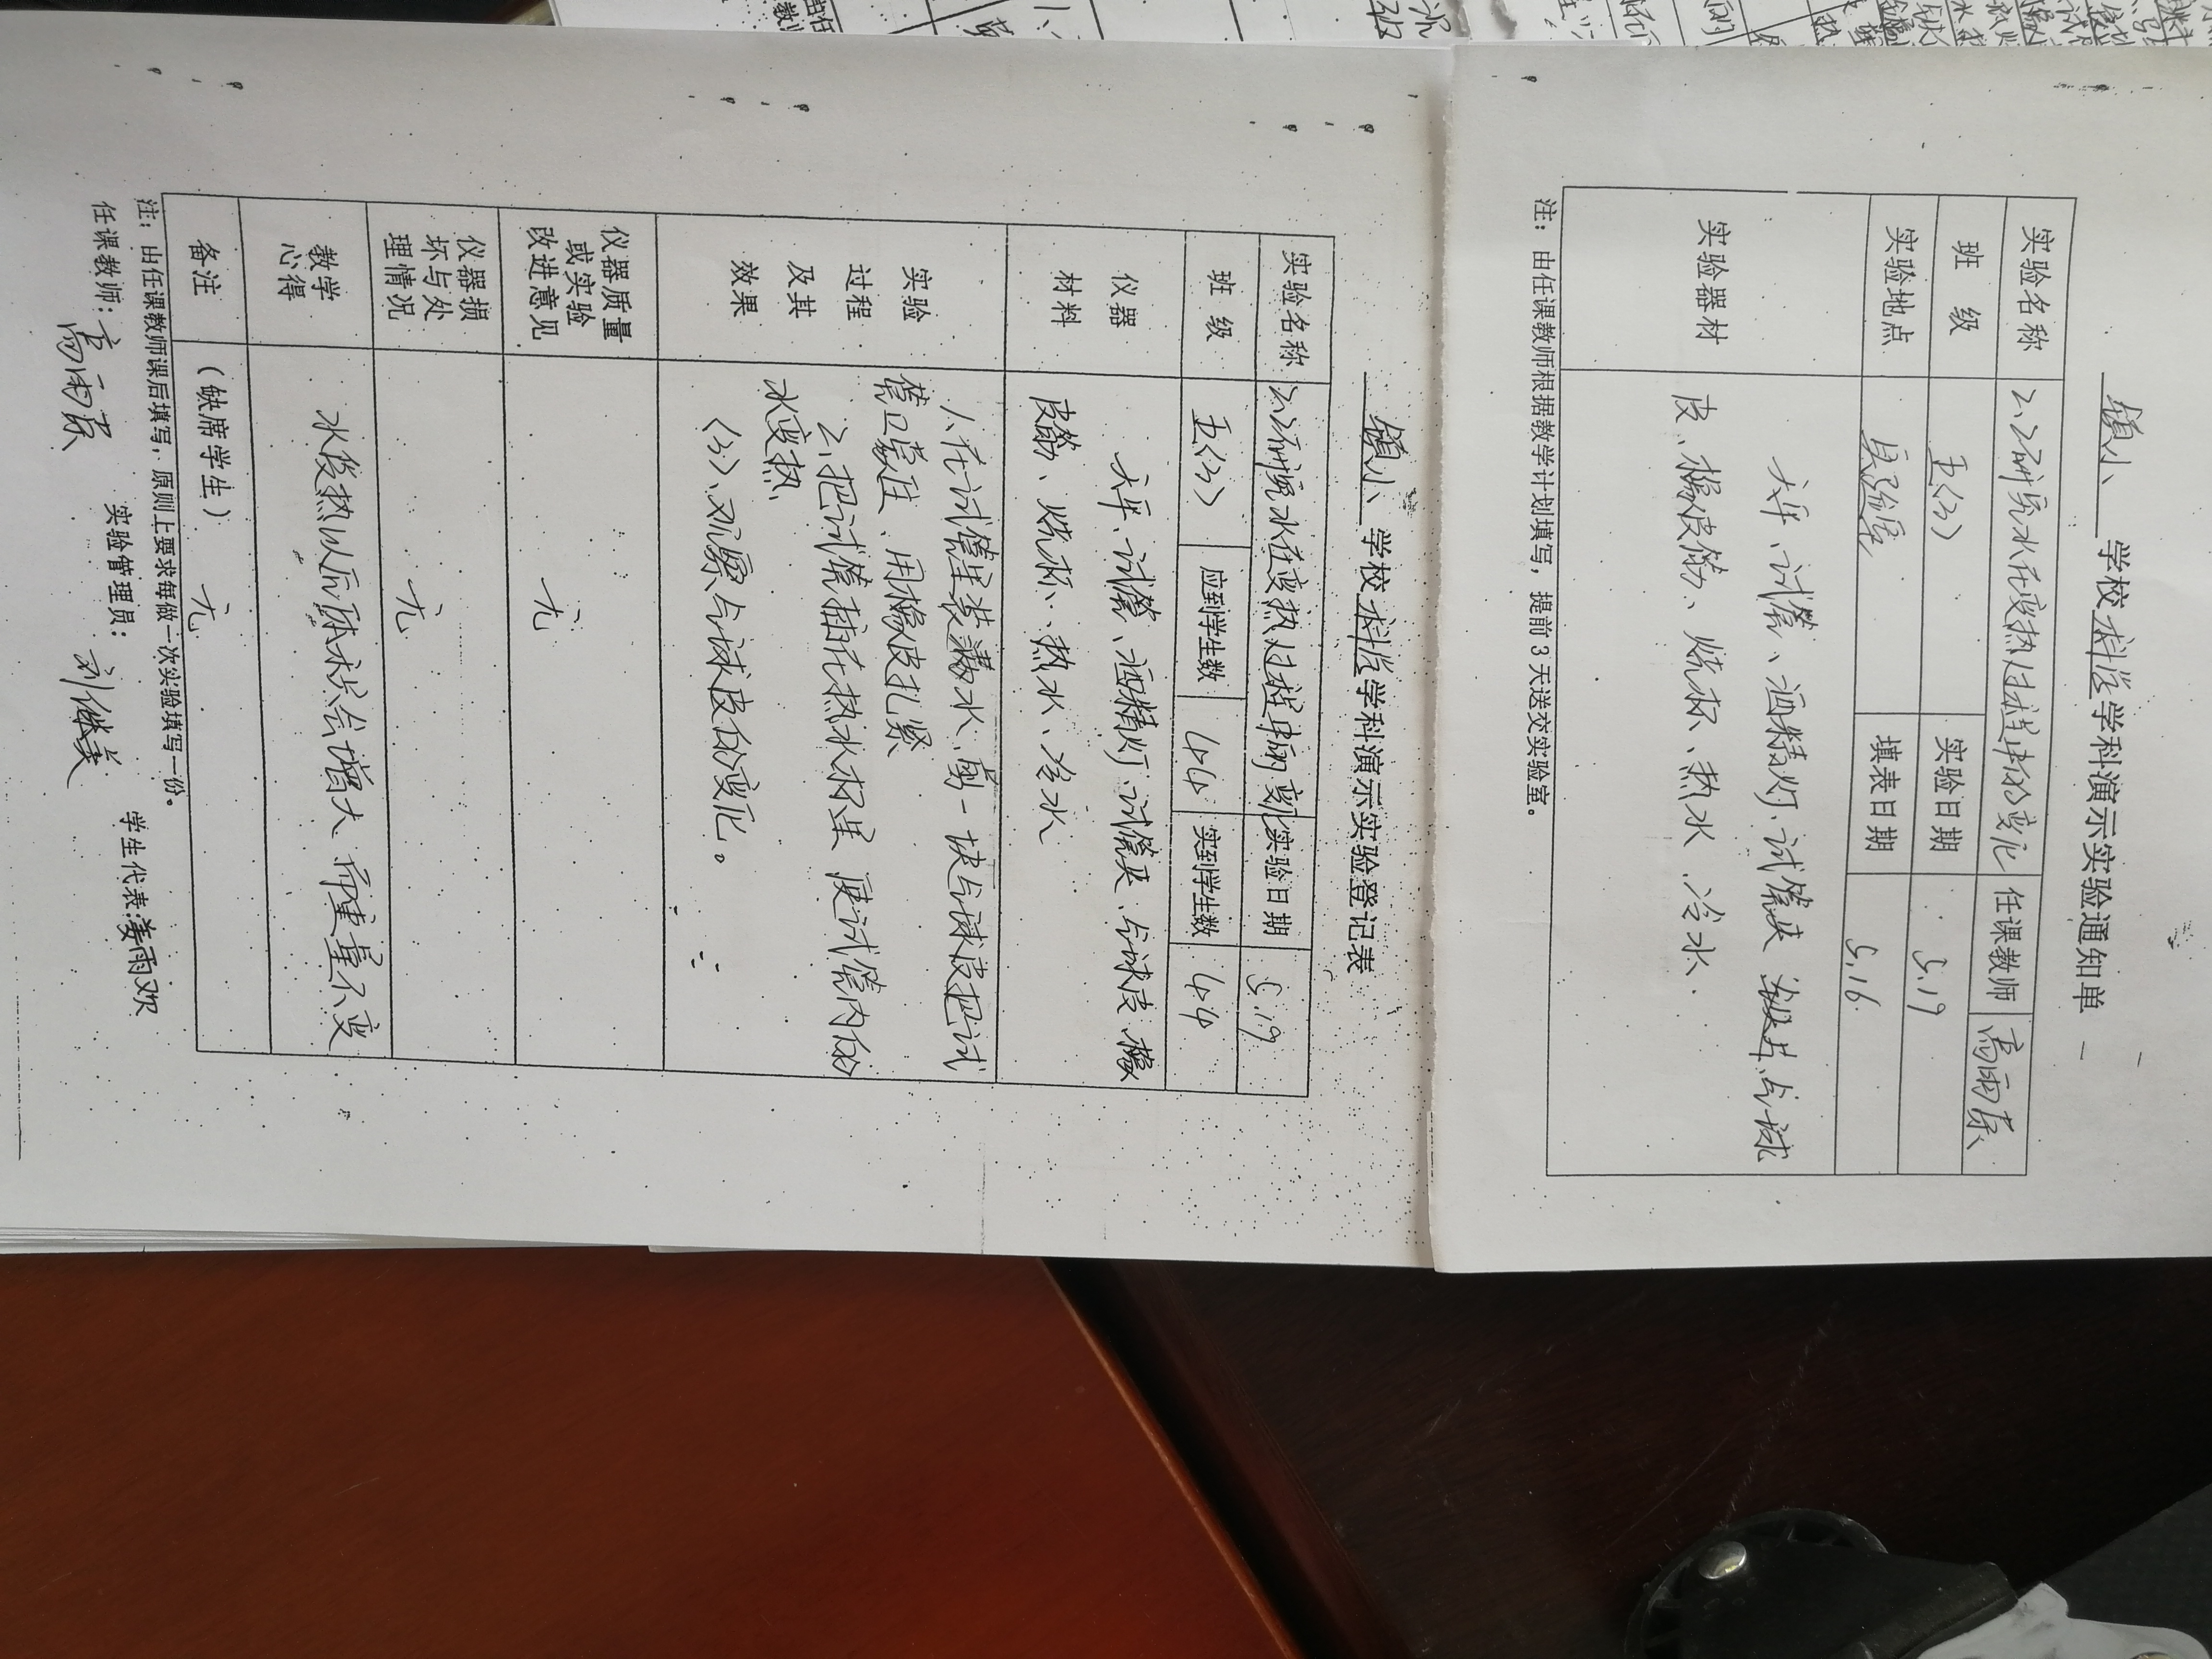 镇小 学校 科学 学科演示实验通知单
实验名称 2.2研究水在变热过程中的变化 任课教师 高雨东
班 级 五(3) 实验日期 5.19
实验地点 实验室 填表日期 5.16
实验器材 天平、试管、酒精灯、试管夹 气球
皮、橡皮筋、烧杯、热水、冷水.
注：由任课教师根据教学计划填写，提前3天送交实验室。
镇小 学校 科学 学科演示实验登记表
实验名称 2.2研究水在变热过程中的变化 实验日期 5.19
班 级 五(3) 应到学生数 44 实到学生数 44
仪器材料 天平、试管、酒精灯、试管夹、气球皮、橡
皮筋、烧杯、热水、冷水
实验过程及其效果 1.在试管里装满水,剪一块气球皮把试
管口蒙住、用橡皮扎紧
2.把试管插在热水杯里 使试管内的
水变热
(3)、观察气球皮的变化。
仪器质量或实验改进意见 无
仪器损坏与处理情况 无
教学心得 水受热以后体积会增大 而重量不变
备注 (缺席学生) 无
注：由任课教师课后填写，原则上要求每做一次实验填写一份。
任课教师：高雨东 实验管理员：刘继美 学生代表：姜雨欢